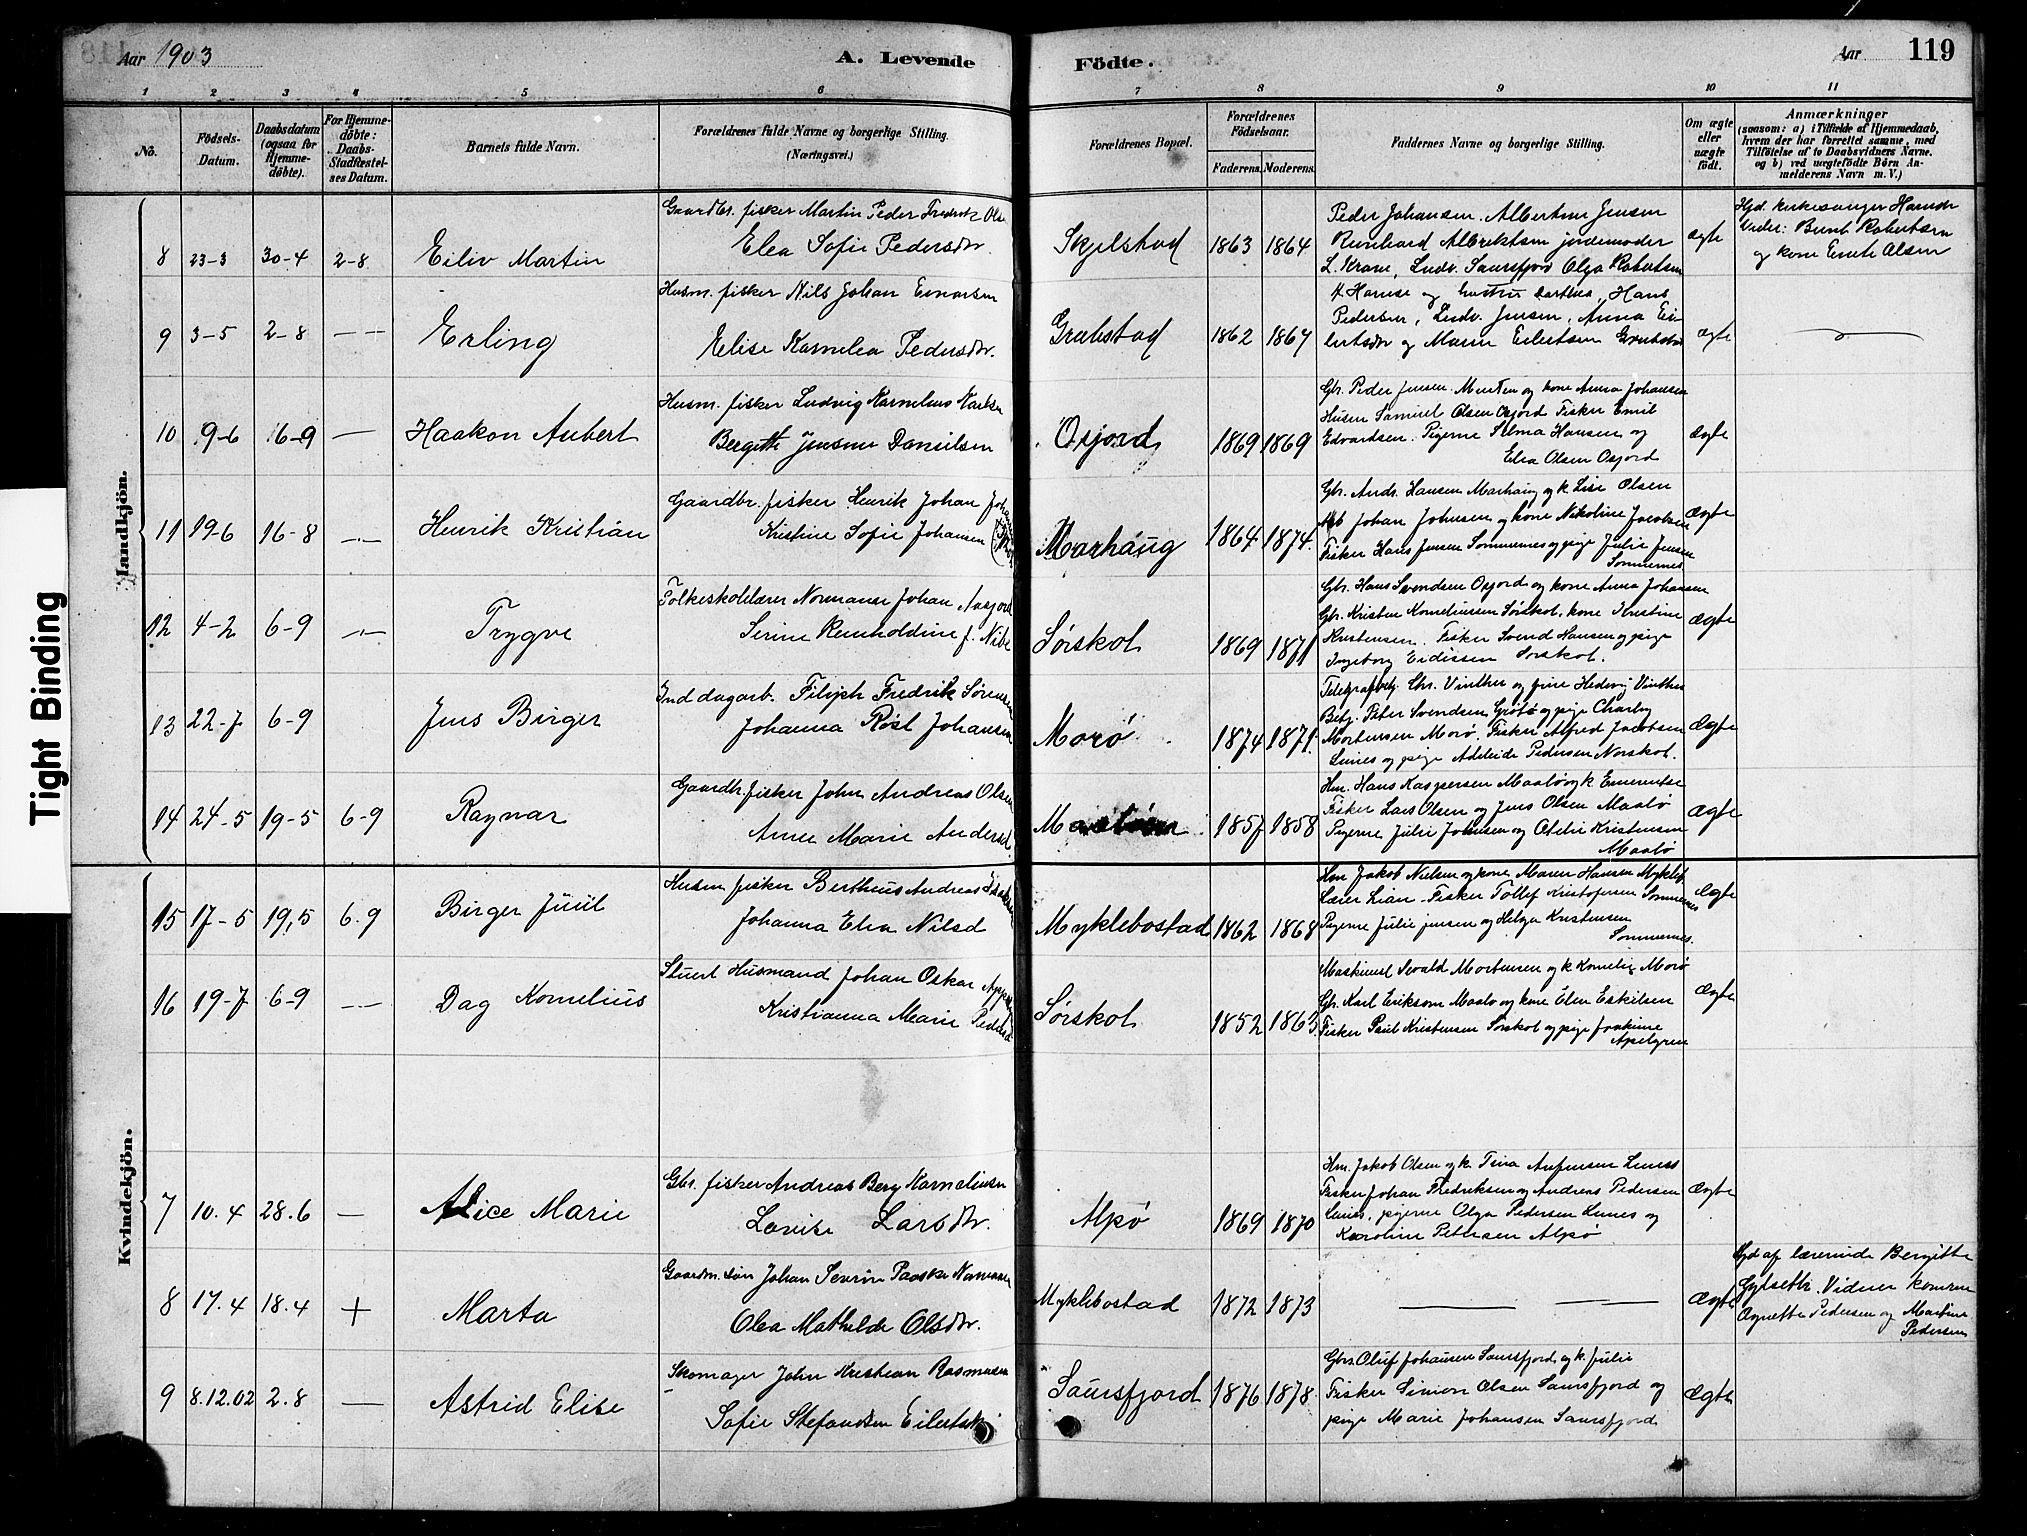 Aar 1903
A. Levende
Födte.
Aar
119
1 2 3 4 5 6 7 8 9 10 11
No.
Födsels-Datum.
Daabsdatum (ogsaa for Hjemme-döbte).
For Hjemme-döbte: Daabs-Stadfæstel-ses Datum.
Barnets fulde Navn.
Forældrenes fulde Navne og borgerlige Stilling.
(Næringsvei.)
Forældrenes Bopæl.
Forældrenes Födselsaar.
Faderens. Moderens.
Faddernes Navne og borgerlige Stilling.
Om ægte eller uægte födt.
Anmærkninger
(saasom: a) i Tilfælde af Hjemmedaab, hvem der har forrettet samme, med Tilföielse af to Daabsvidners Navne. og b) ved uægtefödte Börn An-melderens Navn m. V.)
Mandkjön.
Gaardbr. fisker Martin Peder Fredrik Ols
8 23-3 30-4 2-8 Eiliv Martin
Elea Sofie Pedersdtr.
Skjelstad 1863 1864
Peder Johansen. Albertine Jensen
Reinhard Albrektsen jordemoder
L. Krane, Ludv. Saursfjord Olga Robertsen
ægte
Hjd. kirkesanger Hamdr
Vider: Bernt Robertsen
og kone Olsen
Husm. fisker Nils Johan Einarsen
9 3-5 2-8 — — Erling
Elise Kornelia Pedersdtr.
Grabstad 1862 1867
Hans
Pedersen, Ludv. Jensen, Anna Ei-
lertsdtr og Maren Eilertsen
ægte
Husm. fisker Ludvig Kornelius
10 9-6 16-9 — Haakon Aubert
Bergitte Danielsen
Osjord 1869 1869
Gbr. Peder Jensen og kone Anna Johansen
Husm Samuel Olsen Osjord Fisker Emil
Edvardsen. Pigerne Selma Hansen og
Elea Olsen Osjord
ægte
Gaardbr. fisker Henrik Johan
11 19-6 16-8 — Henrik Kristian
Kristine Sofie Johansen
Marhaug 1864 1874.
Gbr. Andr. Hansen Marhaug og k. Lise Olsen
Johan Johnsen og kone Nikoline Jacobsen
Fisker Hans Jensen Sommernes og pige Julie Jensen
Sommernes
ægte
Folkeskolelærer Normann Johan Aasjord
12 4-2 6-9 — Trygve
Serine Reinholdine f. Nibe
Sørskot 1869 1871
Gbr. Hans Svendsen Osjord og kone Anna Johansen
Gbr. Kristen Korneliussen Sørskot, kone Kristine
Kristensen. Fisker Svend Hansen og pige
Ingeborg Eidissen Sørskot.
ægte
Ind dagarb. Filiph Fredrik Sørensen
13 22-7 6-9 Jens Birger
Johanna Rosl Johansen
Morø 1874 1871.
Telegrafbstj. Chr. Vinther og frue Hedevig Vinther
Betj. Peter Svendsen Grøtø og pige Charley
Mortensen Morø. Fisker Alfred Jacobsen
Lunes og pige Adeleide Pedersen Norskot.
ægte
Gaardbr. fisker John Andreas Olsen
14 24-5 19-5 6-9 Ragnar
Anne Marie Andersd
1857 1858
Hm. Hans Kaspersen Maalø og k Emerentse
Fisker Lars Olsen og Jens Olsen Maalø
Pigerne Julie Johnsen og Otelie Kristensen
Maalø
ægte
Husm fisker Bertheus Andreas
15 17-5 19,5 6.9 Birger Juul
Johanna Elea Nilsd
Myklebostad 1862 1868
Hm Jakob Nielsen og kone Maren Hansen Myklep
Lærer Lian. Fisker Tollef Kristofersen Sommernes
Pigerne Julie Jensen og Helga Kristensen
Sommernes.
ægte
Stuert Husmand Johan Oskar
16 19-7 6-9 — Dag Kornelius
Kristianna Marie Pedersd
Sørskot 1852 1863.
Maskinist Sevald Mortensen og k Kornelia Morø
Gb. Karl Eriksen Maalø og kone Elen Eskilsen
Fisker Paul Kristensen Sørskot og pige Joakime
Apelgren
ægte
Kvindekjön.
Gbr. fisker Andreas Berg Korneliusen
7 10.4 28.6 — Alice Marie
Lovise Larsdtr.
Alpø 1869 1870
Hm. Jakob Olsen og k. Tina Anfinsen Luness
Fisker Johan Fredriksen og Andreas Pedersen
Lunes, pigerne Olga Pedersen Lunes og
Karoline Petersen Alpø
ægte
Gaardm. søn Johan Severin Paaske Normann
8 17.4 18.4 + Marta
Olea Mathilde Olsdtr.
Myklebostad 1872 1873 — —
ægte
Hjd af lærerinde Bergitte
Vidner konerne
Agnette Pedersen og Martine
Pedersen
Skomager John Kristian Rasmussen
9 8.12.02 2.8 — Astrid Elise
Sofie Stefansen
Saursfjord 1876 1878.
Gbr. Oluf Johansen Saursfjord og k. Julie
Fisker Simon Olsen Saursfjord og
pige Marie Johansen Saursfjord
ægte
Tight Binding